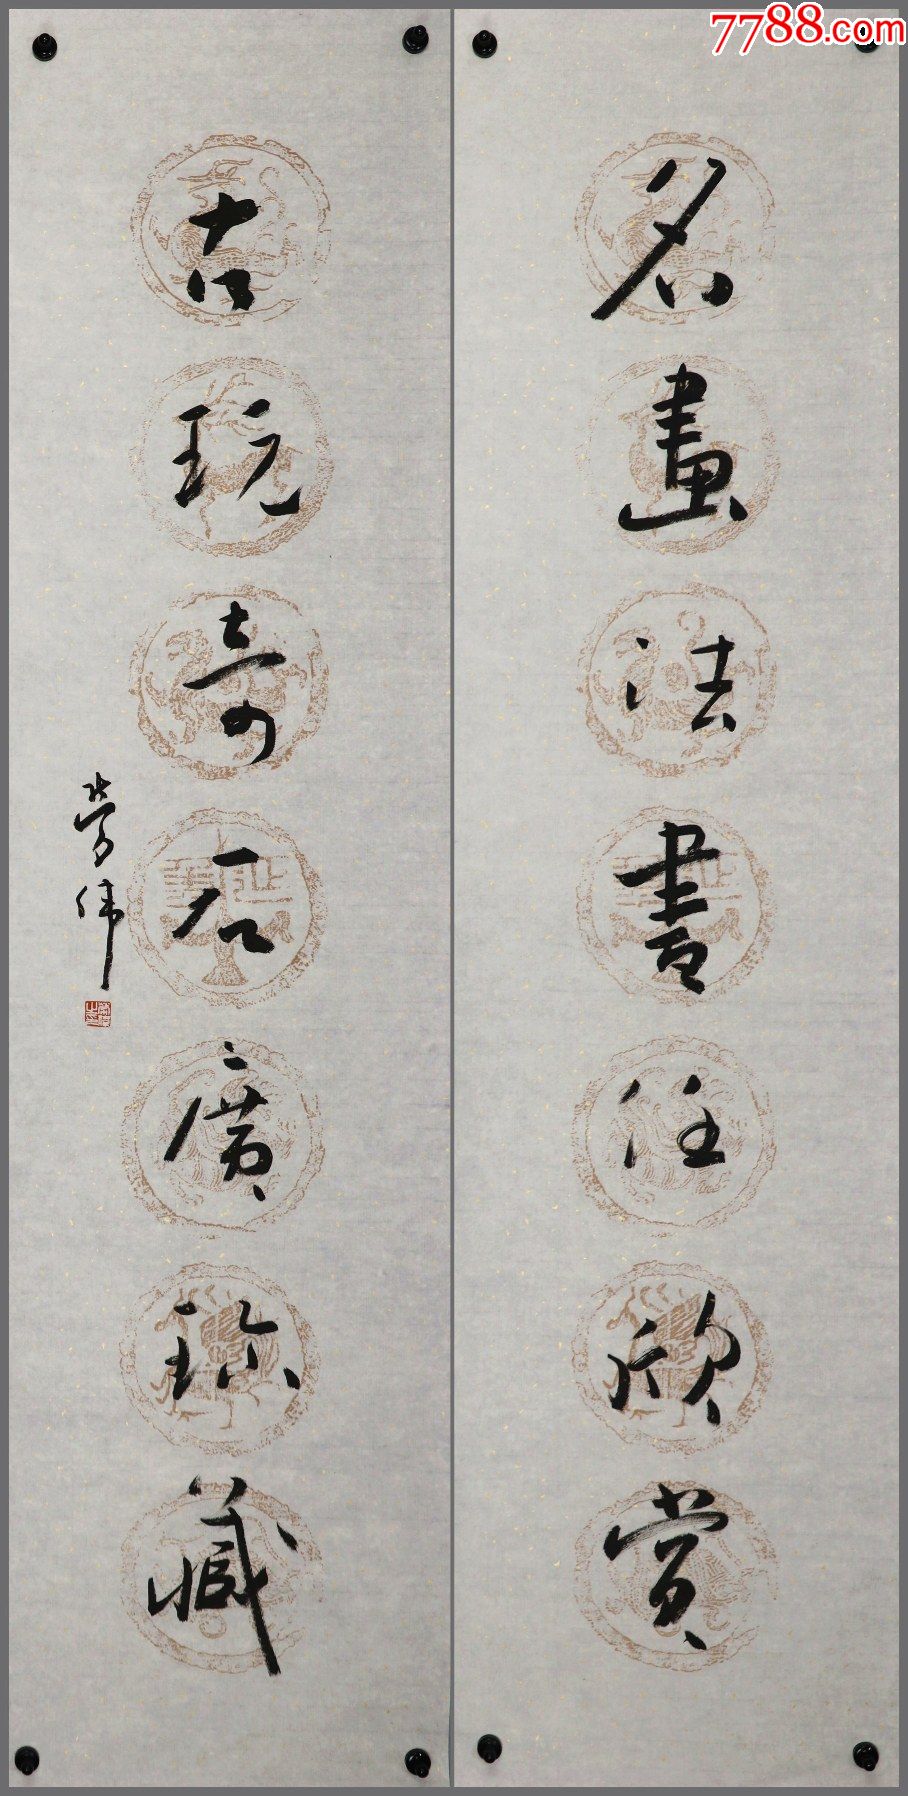 7788.com
名畫法書任欣賞
古玩奇石廣珍藏
勞偉